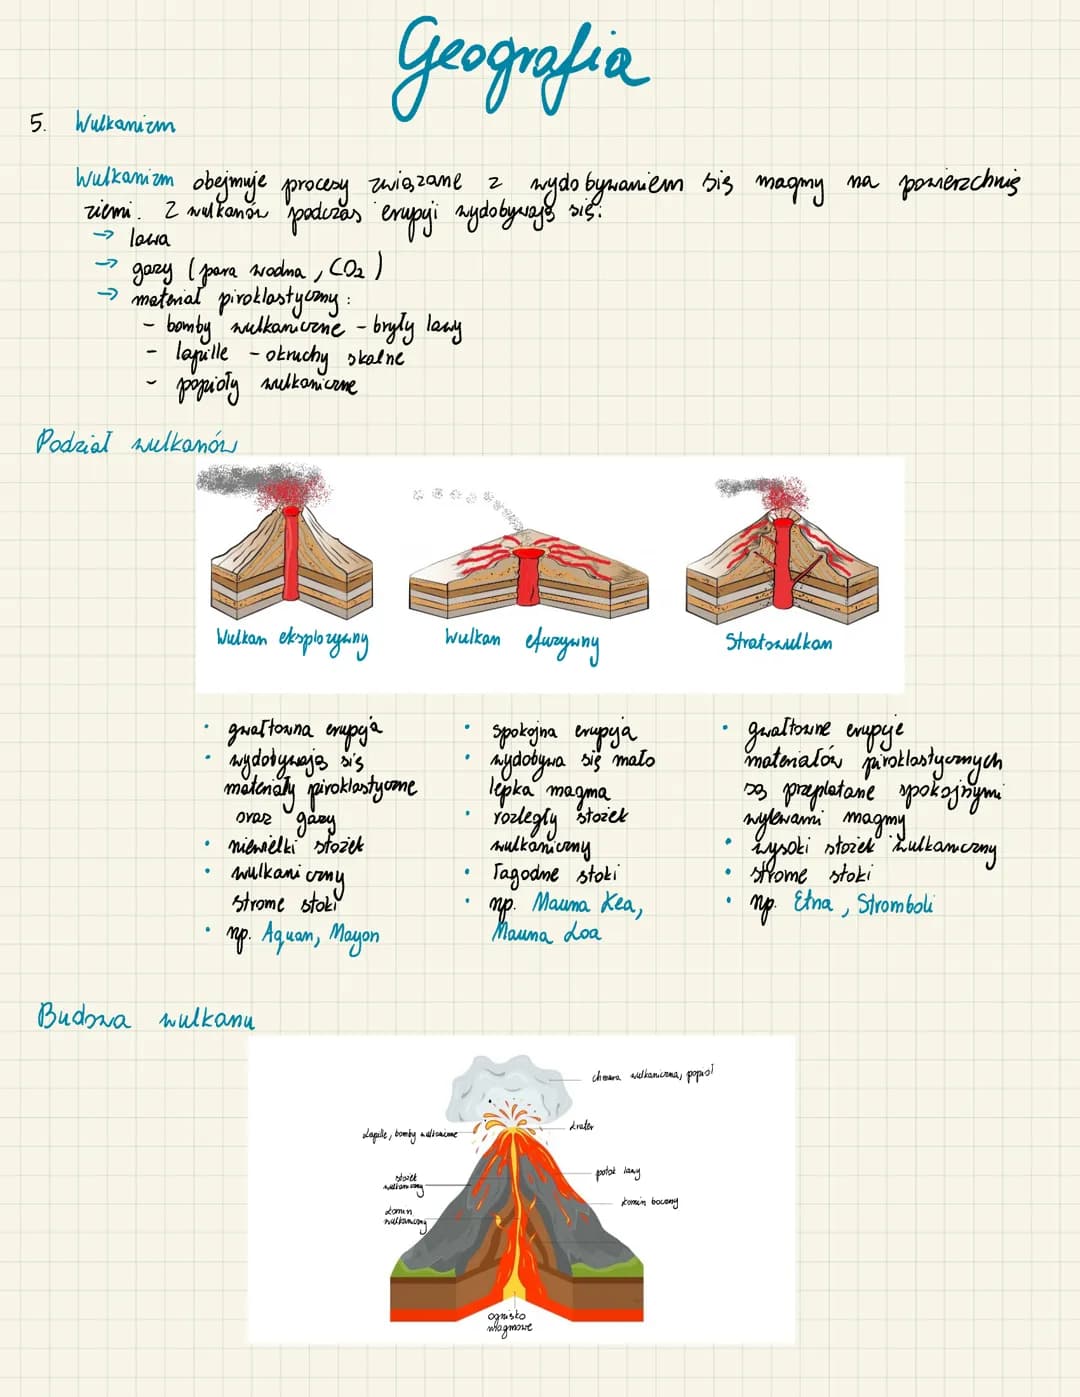 Geografia
5. Wulkanizm
Wulkanizm obejmuje procesy związane z wydobywaniem się magmy na powierzchnię
ziemi. Z wulkanów podczas erupcji wydobywają się:
→ lawa
→ gazy (para wodna, CO2)
→ materiał piroklastyczny:
- bomby wulkaniczne - bryły lawy
- lapille - okruchy skalne
- popioły wulkaniczne
Podział wulkanów
Wulkan eksplozywny
Wulkan efuzywny
Stratowulkan
• gwałtowna erupcja
• wydobywają się
materiały piroklastyczne
oraz gazy
• niewielki stożek
• wulkaniczny
strome stoki
• np. Aquan, Mayon
• spokojna erupcja
• wydobywa się mało
lepka magma
• rozległy stożek
wulkaniczny
• łagodne stoki
• np. Mauna Kea,
Mauna Loa
• gwałtowne erupcje
materiałów piroklastycznych
są przeplatane spokojnymi
wylewami magmy
• wysoki stożek wulkaniczny
• strome stoki
• np. Etna, Stromboli
Budowa wulkanu
chmura wulkaniczna, popiół
Lapille, bomby wulkaniczne
krater
stożek
wulkaniczny
potok lawy
komin
wulkaniczny
komin boczny
ognisko
magmowe